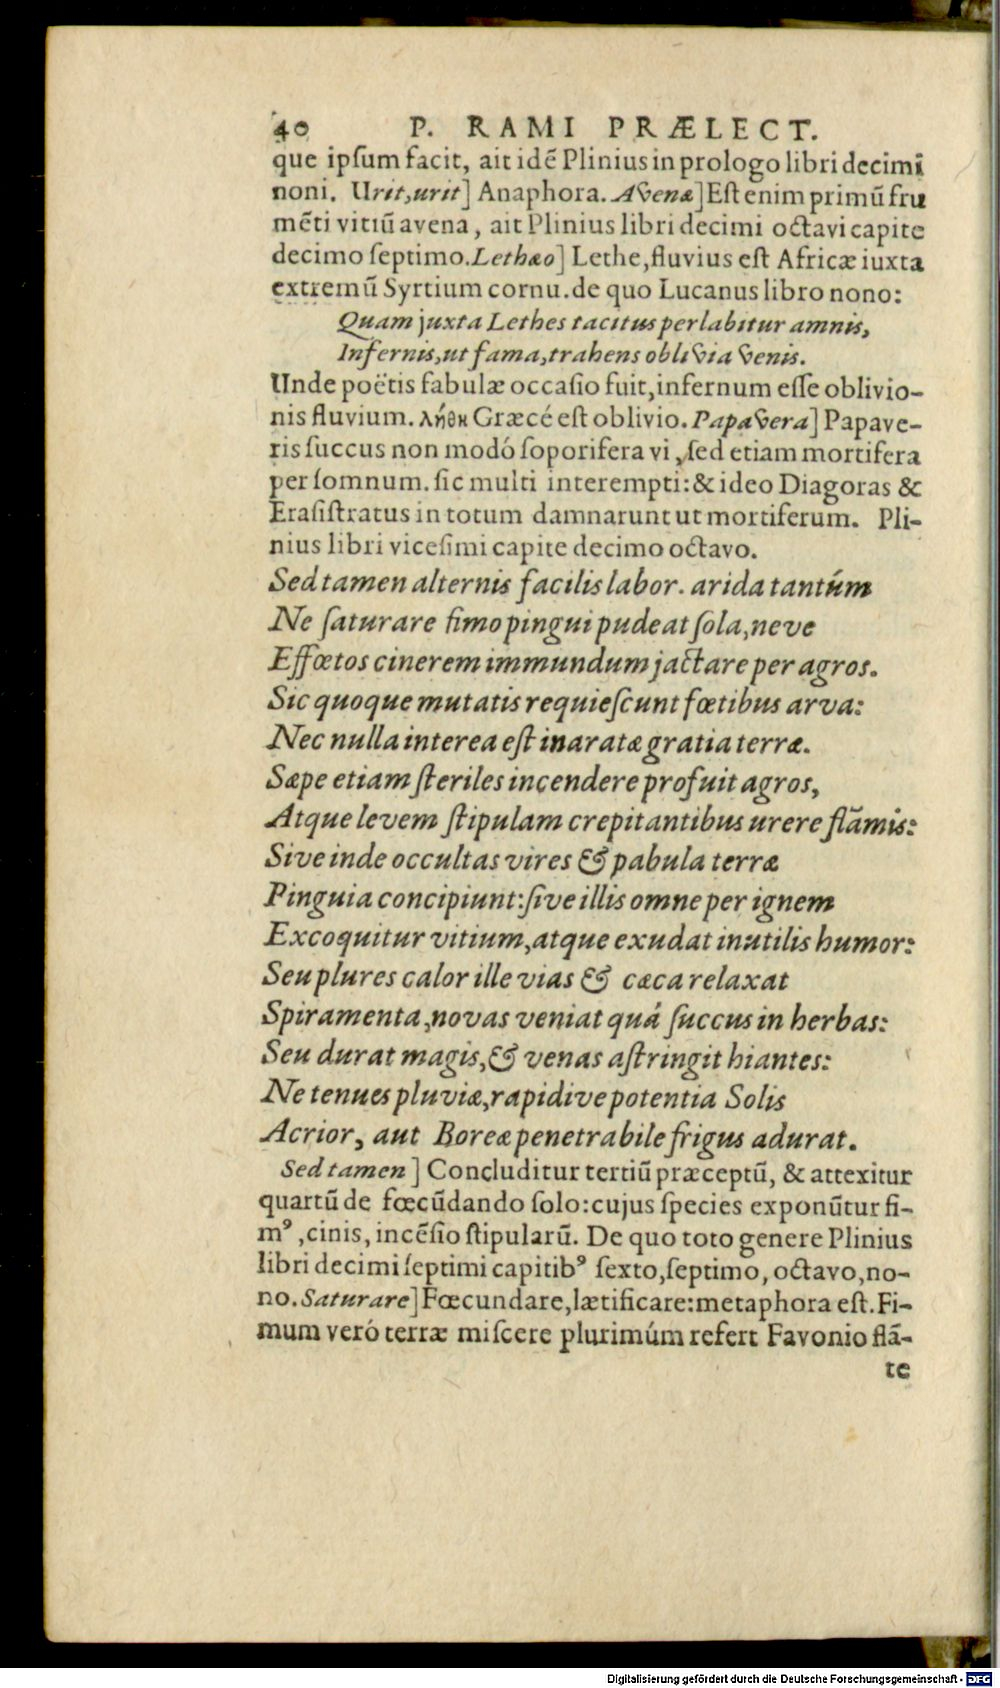 40 P. RAMI PRÆLECT.
que ipſum facit, ait idẽ Plinius in prologo libri decimi
noni. Urit,urit] Anaphora. Avenæ] Eſt enim primũ fru
mẽti vitiũ avena, ait Plinius libri decimi octavi capite
decimo ſeptimo. Lethæo] Lethe, fluvius eſt Africæ iuxta
extremũ Syrtium cornu. de quo Lucanus libro nono:
Quam juxta Lethes tacitus perlabitur amnis,
Infernis, ut fama, trahens oblivia venis.
Unde poëtis fabulæ occaſio fuit, infernum eſſe oblivio-
nis fluvium. λήθη Græcé eſt oblivio. Papavera] Papave-
ris ſuccus non modó ſoporifera vi, ſed etiam mortifera
per ſomnum. ſic multi interempti: & ideo Diagoras &
Eraſiſtratus in totum damnarunt ut mortiferum. Pli-
nius libri viceſimi capite decimo octavo.
Sed tamen alternis facilis labor. arida tantúm
Ne ſaturare fimo pingui pudeat ſola, neve
Effœtos cinerem immundum jactare per agros.
Sic quoque mutatis requieſcunt fœtibus arva:
Nec nulla interea eſt inaratæ gratia terræ.
Sæpe etiam ſteriles incendere profuit agros,
Atque levem ſtipulam crepitantibus urere flãmis:
Sive inde occultas vires & pabula terræ
Pinguia concipiunt: ſive illis omne per ignem
Excoquitur vitium, atque exudat inutilis humor:
Seu plures calor ille vias & cæca relaxat
Spiramenta, novas veniat quá ſuccus in herbas:
Seu durat magis, & venas aſtringit hiantes:
Ne tenues pluviæ, rapidive potentia Solis
Acrior, aut Boreæ penetrabile frigus adurat.
Sed tamen] Concluditur tertiũ præceptũ, & attexitur
quartũ de fœcũdando ſolo: cujus ſpecies exponũtur fi-
mꝰ, cinis, incẽſio ſtipularũ. De quo toto genere Plinius
libri decimi ſeptimi capitibꝰ ſexto, ſeptimo, octavo, no-
no. Saturare] Fœcundare, lætificare: metaphora eſt. Fi-
mum veró terræ miſcere plurimúm refert Favonio flã-
te
Digitalisierung gefördert durch die Deutsche Forschungsgemeinschaft - DFG